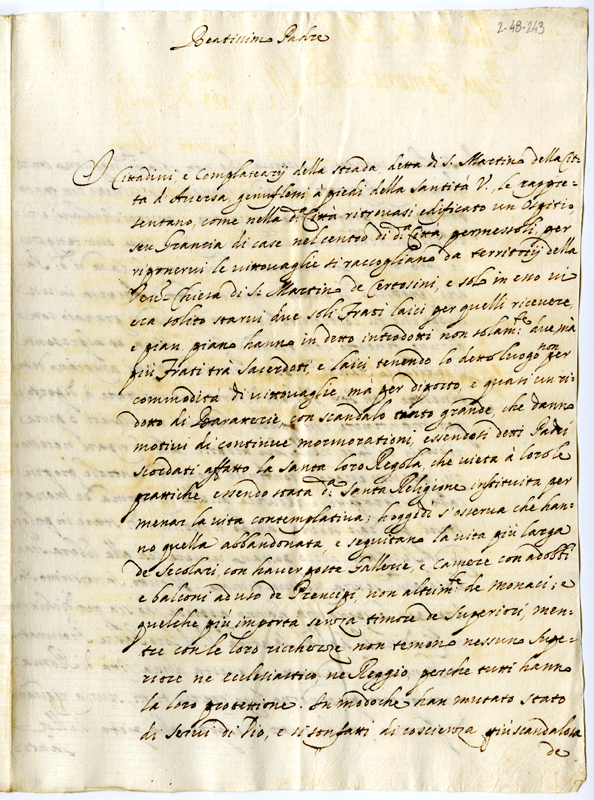 2-48-243
Beatissimo Padre
Cittadini, e Complatearij della strada detta di S. Martino della Cit-
tà d'Aversa genuflessi à piedi della Santità V., le rappre-
sentano, come nella d.a Città ritrovasi edificato un Ospitio
seu Grancia di case nel centro di d.a Città, permessoli, per
riponervi le vittovaglie si raccogliano da territorij della
Ven. Chiesa di S. Martino de Certosini, e solo in esso vi
era solito starvi due soli Frati laici per quelli ricevere,
e pian, piano hanno in detto introdotti non solam.te due, mà
più Frati trà Sacerdoti, e laici, tenendo lo detto luogo non per
commodità di vittovaglie, mà per diporto, e quasi un ri-
dotto di Baratterie, con scandalo tanto grande, che danno
motivi di continue mormorationi, essendosi detti Padri
scordati affatto la Santa loro Regola, che vieta à loro le
prattiche, essendo stata d.a Santa Religione instituita per
menar la vita contemplativa; hoggidì s'osserva che han-
no quella abbandonata, e seguitano la vita più larga
de Secolari, con haver poste Gallerie, e Camere con adobbi
e balconi ad uso de Prencipi, non altrim.te de monaci; e
quelche più importa senza timore de Superiori, men-
tre con le loro ricchezze non temono nessuno Supe-
riore ne ecclesiastico, ne Reggio, perche tutti hanno
la loro protettione. In modoche han mutato stato
di Servi di Dio, e si son fatti di coscienza più scandalosa
de